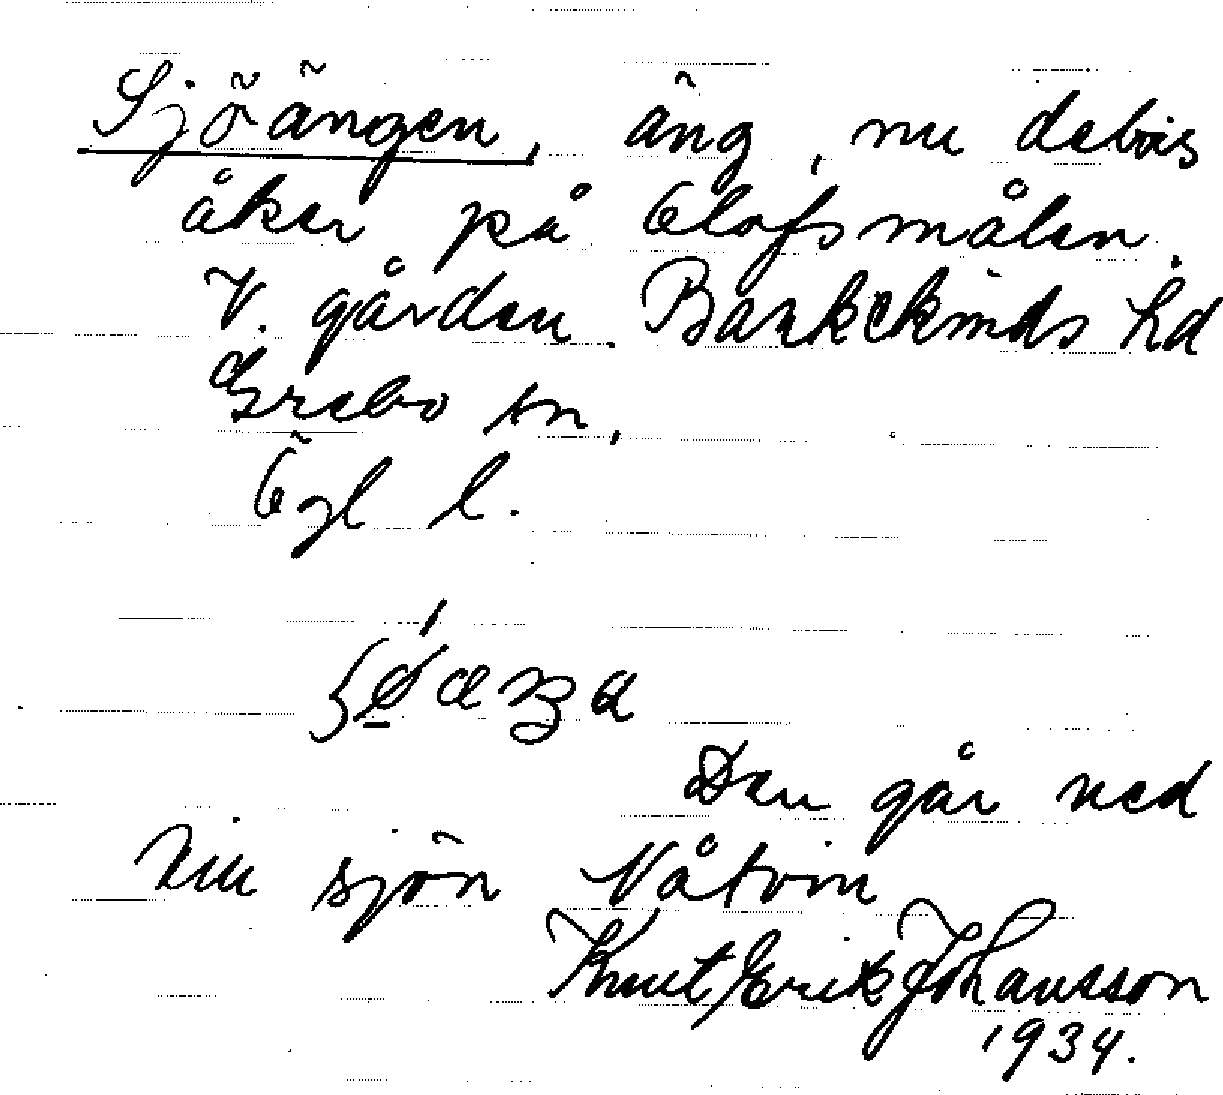 Sjöängen, äng, nu delvis
åker på Olofsmålen
V. gården. Bankekinds hd
Grebo sn,
Ögl l.
Den går ned
till sjön Nåtvin
Knut Erik Johansson
1934.